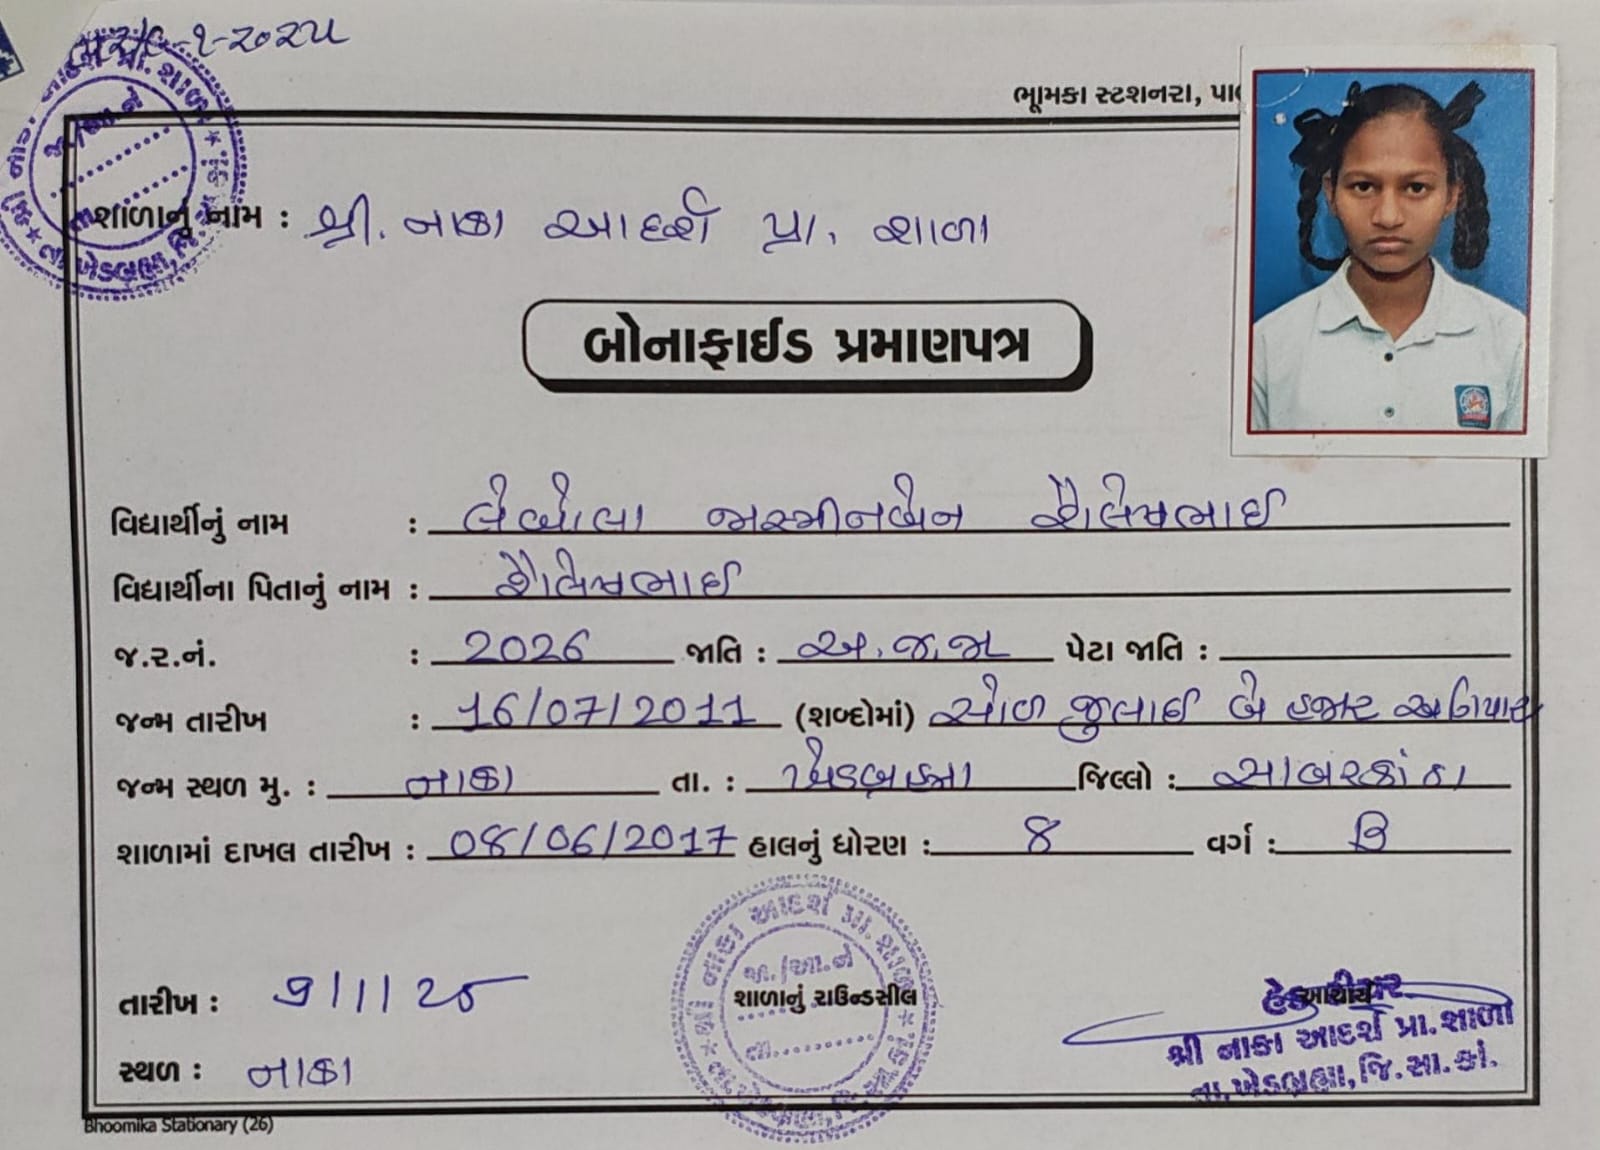 ૯-૧-૨૦૨૫
ભૂમિકા સ્ટેશનરી,
શાળાનું નામ : શ્રી. નાકા આદર્શ પ્રા. શાળા
બોનાફાઈડ પ્રમાણપત્ર
વિદ્યાર્થીનું નામ : લેબોલા જાસ્મીનબેન શૈલેષભાઈ
વિદ્યાર્થીના પિતાનું નામ : શૈલેષભાઈ
જ.ર.નં. : 2026 જાતિ : અ.જ.જા પેટા જાતિ :
જન્મ તારીખ : 16/07/2011 (શબ્દોમાં) સોળ જુલાઈ બે હજાર અગિયાર
જન્મ સ્થળ મુ. : નાકા તા. : ખેડબ્રહ્મા જિલ્લો : સાબરકાંઠા
શાળામાં દાખલ તારીખ : 08/06/2017 હાલનું ધોરણ : 8 વર્ગ : B
શ્રી નાકા આદર્શ પ્રા. શાળા
જા./આ.નં
તા.
તારીખ : 9/1/25
શાળાનું રાઉન્ડસીલ
આચાર્ય
શ્રી નાકા આદર્શ પ્રા.શાળા
તા.ખેડબ્રહ્મા, જિ.સા.કાં.
સ્થળ : નાકા
Bhoomika Stationary (26)